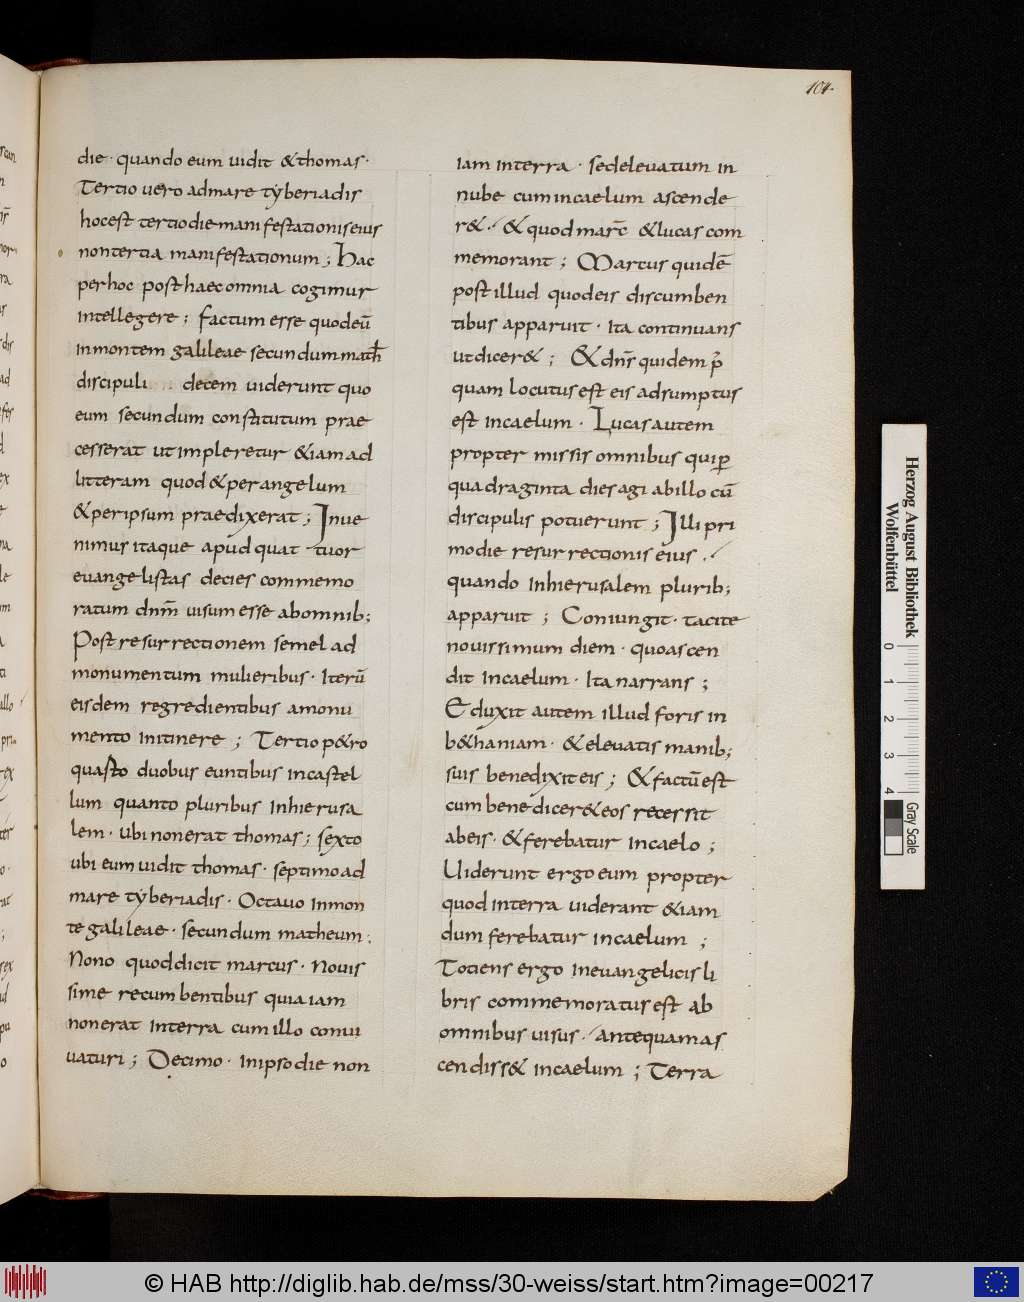 104.
die · quando eum uidit & thomas ·
Tertio uero ad mare tyberiadis
hoc est tertio die manifestationis eius
non tertia manifestationum ; Hac
per hoc post haec omnia cogimur
intellegere ; factum esse quod eū
in montem galileae secundum math̄
discipuli decem uiderunt quo
eum secundum constitutum prae
cesserat ut impleretur & iam ad
litteram quod & per angelum
& per ipsum praedixerat ; Inue
nimus itaque apud quattuor
euangelistas decies commemo
ratum dnm̄ uisum esse ab omnib;
Post resurrectionem semel ad
monumentum mulieribus · Iterū
eisdem regredientibus a monu
mento in itinere ; Tertio p&ro
quarto duobus euntibus in castel
lum quanto pluribus in hierusa
lem · ubi non erat thomas ; sexto
ubi eum uidit thomas · septimo ad
mare tyberiadis · Octauo in mon
te galileae · secundum matheum ;
Nono quod dicit marcus · Nouis
sime recumbentibus quia iam
non erat in terra cum illo conui
uaturi ; Decimo · in ipso die non
iam in terra · sed eleuatum in
nube cum in caelum ascende
r& · & quod marc̄ & lucas com
memorant ; Marcus quidē
post illud quod eis discumben
tibus apparuit · Ita continuans
ut dicer& ; & dnr̄ quidem p̄
quam locutus est eis adsumptus
est in caelum · Lucas autem
propter missis omnibus qui p
quadraginta dies agi ab illo cū
discipulis potuerunt ; Illi pri
mo die resurrectionis eius ·
quando in hierusalem plurib;
apparuit ; Coniungit · tacite
nouissimum diem · quo ascen
dit in caelum · Ita narrans ;
Eduxit autem illud foris in
b&haniam · & eleuatis manib;
suis benedixit eis ; & factū est
cum benedicer& eos recessit
ab eis · & ferebatur in caelo ;
Uiderunt ergo eum propter
quod in terra uiderant & iam
dum ferebatur in caelum ;
Totiens ergo in euangelicis li
bris commemoratus est ab
omnibus uisus · antequam as
cendiss& in caelum ; Terra
Herzog August Bibliothek
Wolfenbüttel
0 1 2 3 4
Gray Scale
© HAB http://diglib.hab.de/mss/30-weiss/start.htm?image=00217